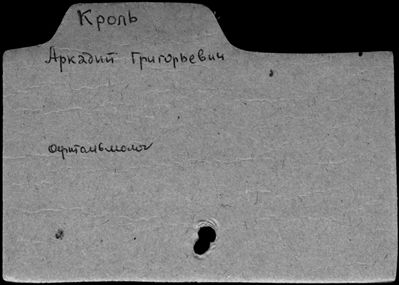 Кроль
Аркадий Григорьевич
офтальмолог